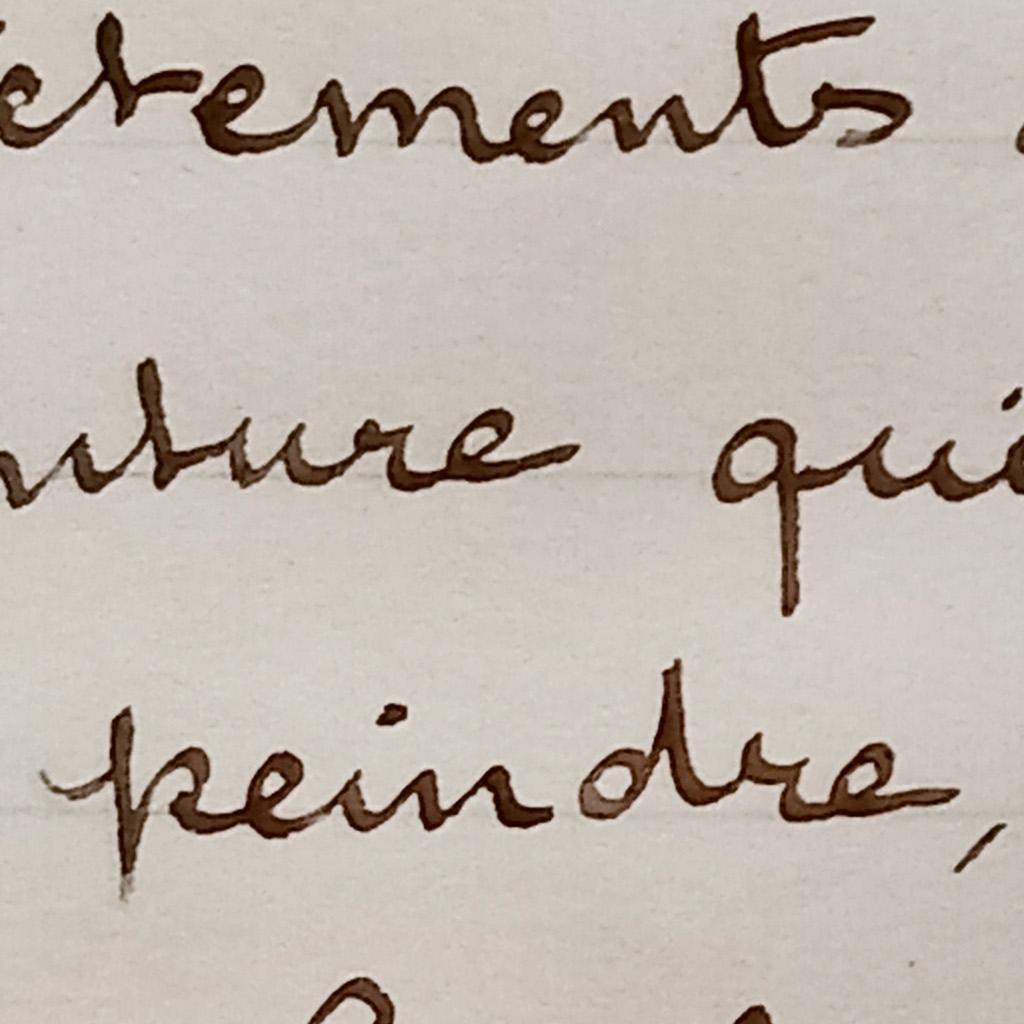 êtements
nture qui
peindre,